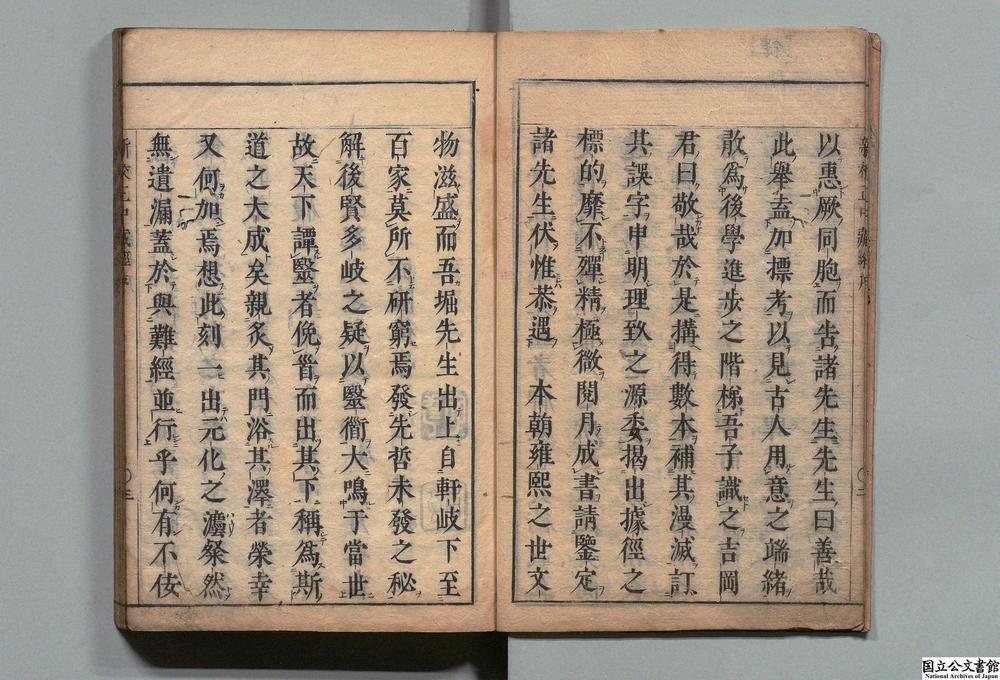 以惠厥同胞而告諸先生先生曰善哉
此舉盍加標考以見古人用意之端緒
散為後學進步之階梯吾子識之吉岡
君曰敬哉於是搆得數本補其漫滅訂
其誤字申明理致之源委揭出據徑之
標的靡不殫精極微閱月成書請鑒定
諸先生伏惟恭遇 本朝雍熙之世文
物滋盛而吾堀先生出上自軒岐下至
百家莫所不研窮焉發先哲未發之秘
解後賢多岐之疑以毉衜大鳴于當世
故天下譚毉者俛首而出其下稱為斯
道之大成矣親炙其門浴其澤者榮幸
又何加焉想此刻一出元化之澹粲然
無遺漏蓋於與難經並行乎何有不佞
国立公文書館
National Archives of Japan